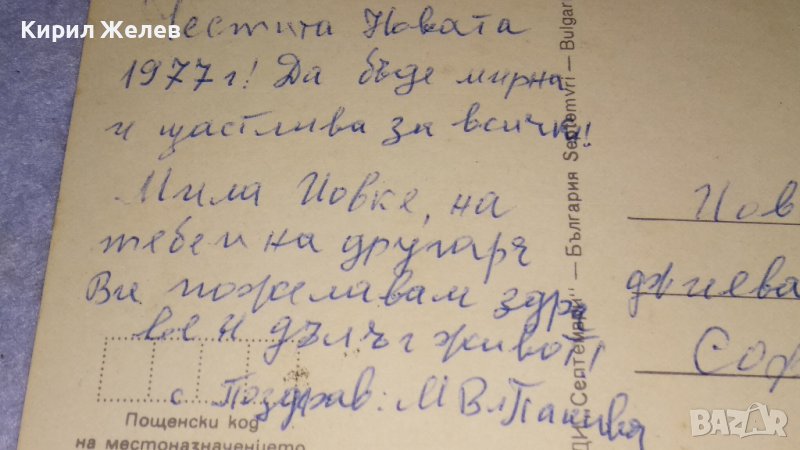 Кирил Желев
Честита Новата
1977 г! Да бъде мирна
и щастлива за всички!
Мила Новке, на
тебе и на другаря
Ви пожелавам здра
ве и дълъг живот!
с Поздрав: М Вл
Пощенски код
на местоназначението
ДИ „Септември“ — България Septemvri — Bulgar
Нов
джиева
Соф
BAZAR